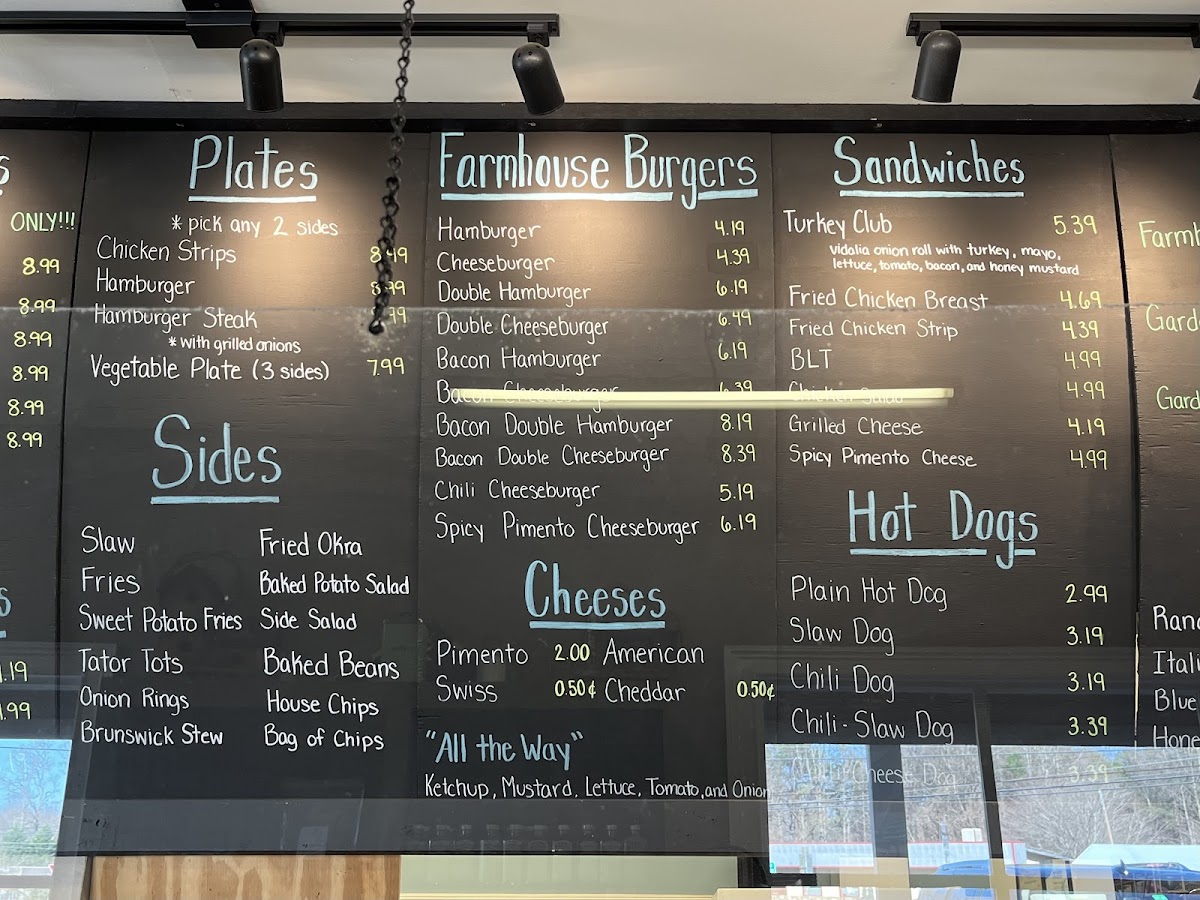 s
ONLY!!!
8.99
8.99
8.99
8.99
8.99
8.99
s
1.19
1.99
Plates
* pick any 2 sides
Chicken Strips 8.49
Hamburger
Hamburger Steak
* with grilled onions
Vegetable Plate (3 sides) 7.99
Sides
Slaw
Fries
Sweet Potato Fries
Tator Tots
Onion Rings
Brunswick Stew
Fried Okra
Baked Potato Salad
Side Salad
Baked Beans
House Chips
Bag of Chips
Farmhouse Burgers
Hamburger 4.19
Cheeseburger 4.39
Double Hamburger 6.19
Double Cheeseburger 6.49
Bacon Hamburger 6.19
Bacon Cheeseburger 6.39
Bacon Double Hamburger 8.19
Bacon Double Cheeseburger 8.39
Chili Cheeseburger 5.19
Spicy Pimento Cheeseburger 6.19
Cheeses
Pimento 2.00 American
Swiss 0.50¢ Cheddar 0.50¢
"All the Way"
Ketchup, Mustard, Lettuce, Tomato, and Onion
Sandwiches
Turkey Club 5.39
vidalia onion roll with turkey, mayo,
lettuce, tomato, bacon, and honey mustard
Fried Chicken Breast 4.69
Fried Chicken Strip 4.39
BLT 4.99
Chicken Salad 4.99
Grilled Cheese 4.19
Spicy Pimento Cheese 4.99
Hot Dogs
Plain Hot Dog 2.99
Slaw Dog 3.19
Chili Dog 3.19
Chili-Slaw Dog 3.39
Chili Cheese Dog 3.39
Farmh
Gard
Gard
Ran
Itali
Blue
Hone